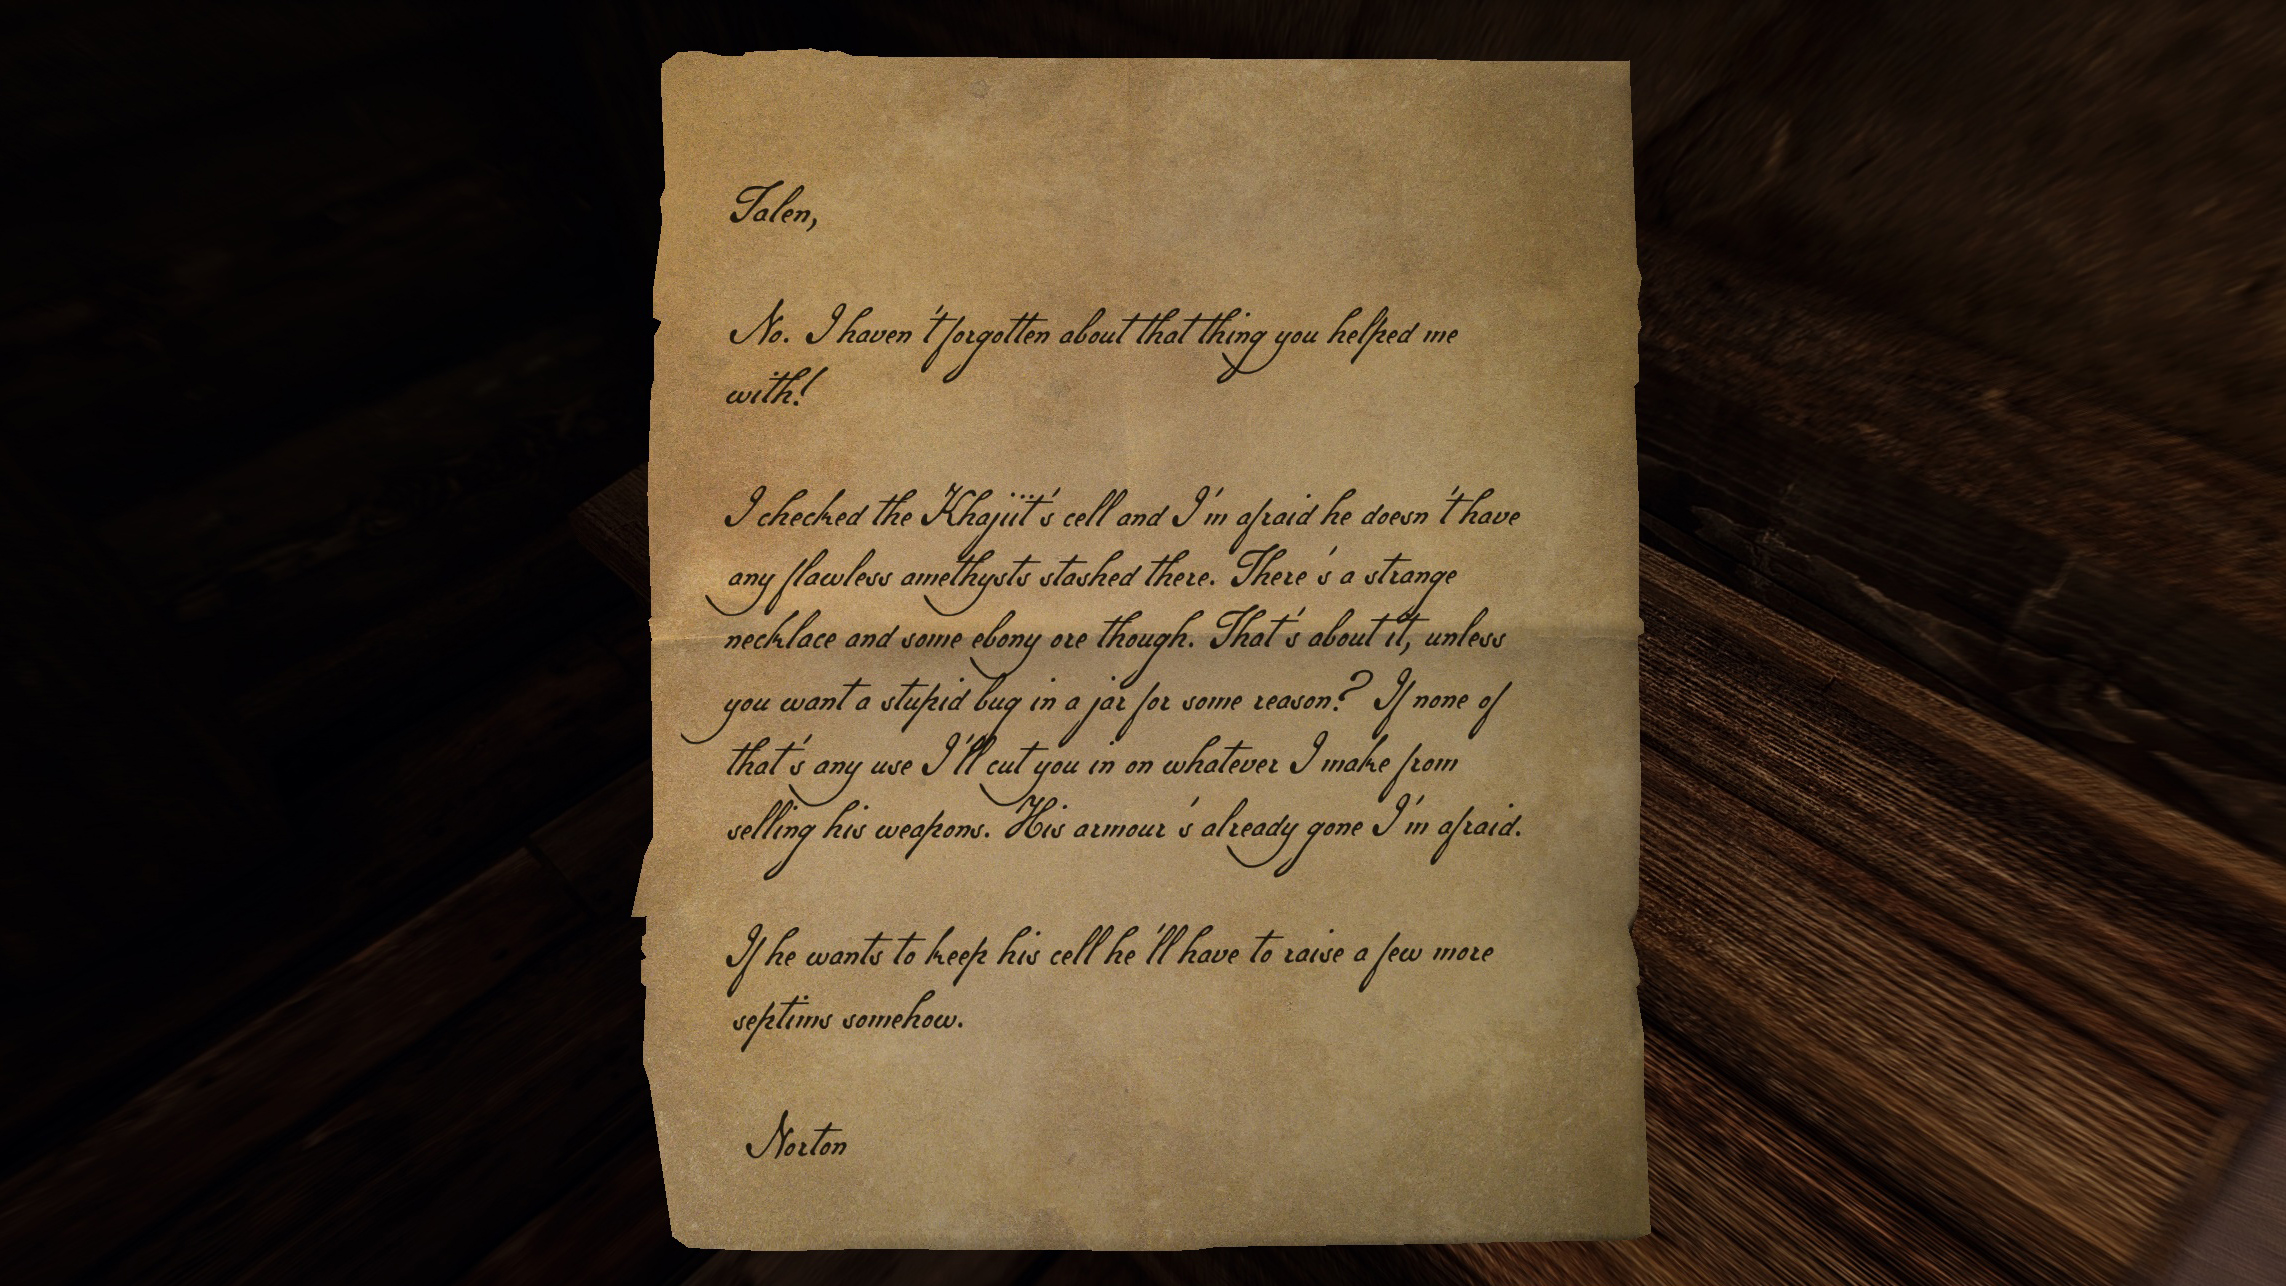 Talen,
No. I haven't forgotten about that thing you helped me
with!
I checked the Khajiit's cell and I'm afraid he doesn't have
any flawless amethysts stashed there. There's a strange
necklace and some ebony ore though. That's about it, unless
you want a stupid bug in a jar for some reason? If none of
that's any use I'll cut you in on whatever I make from
selling his weapons. His armour's already gone I'm afraid.
If he wants to keep his cell he'll have to raise a few more
septims somehow.
Norton